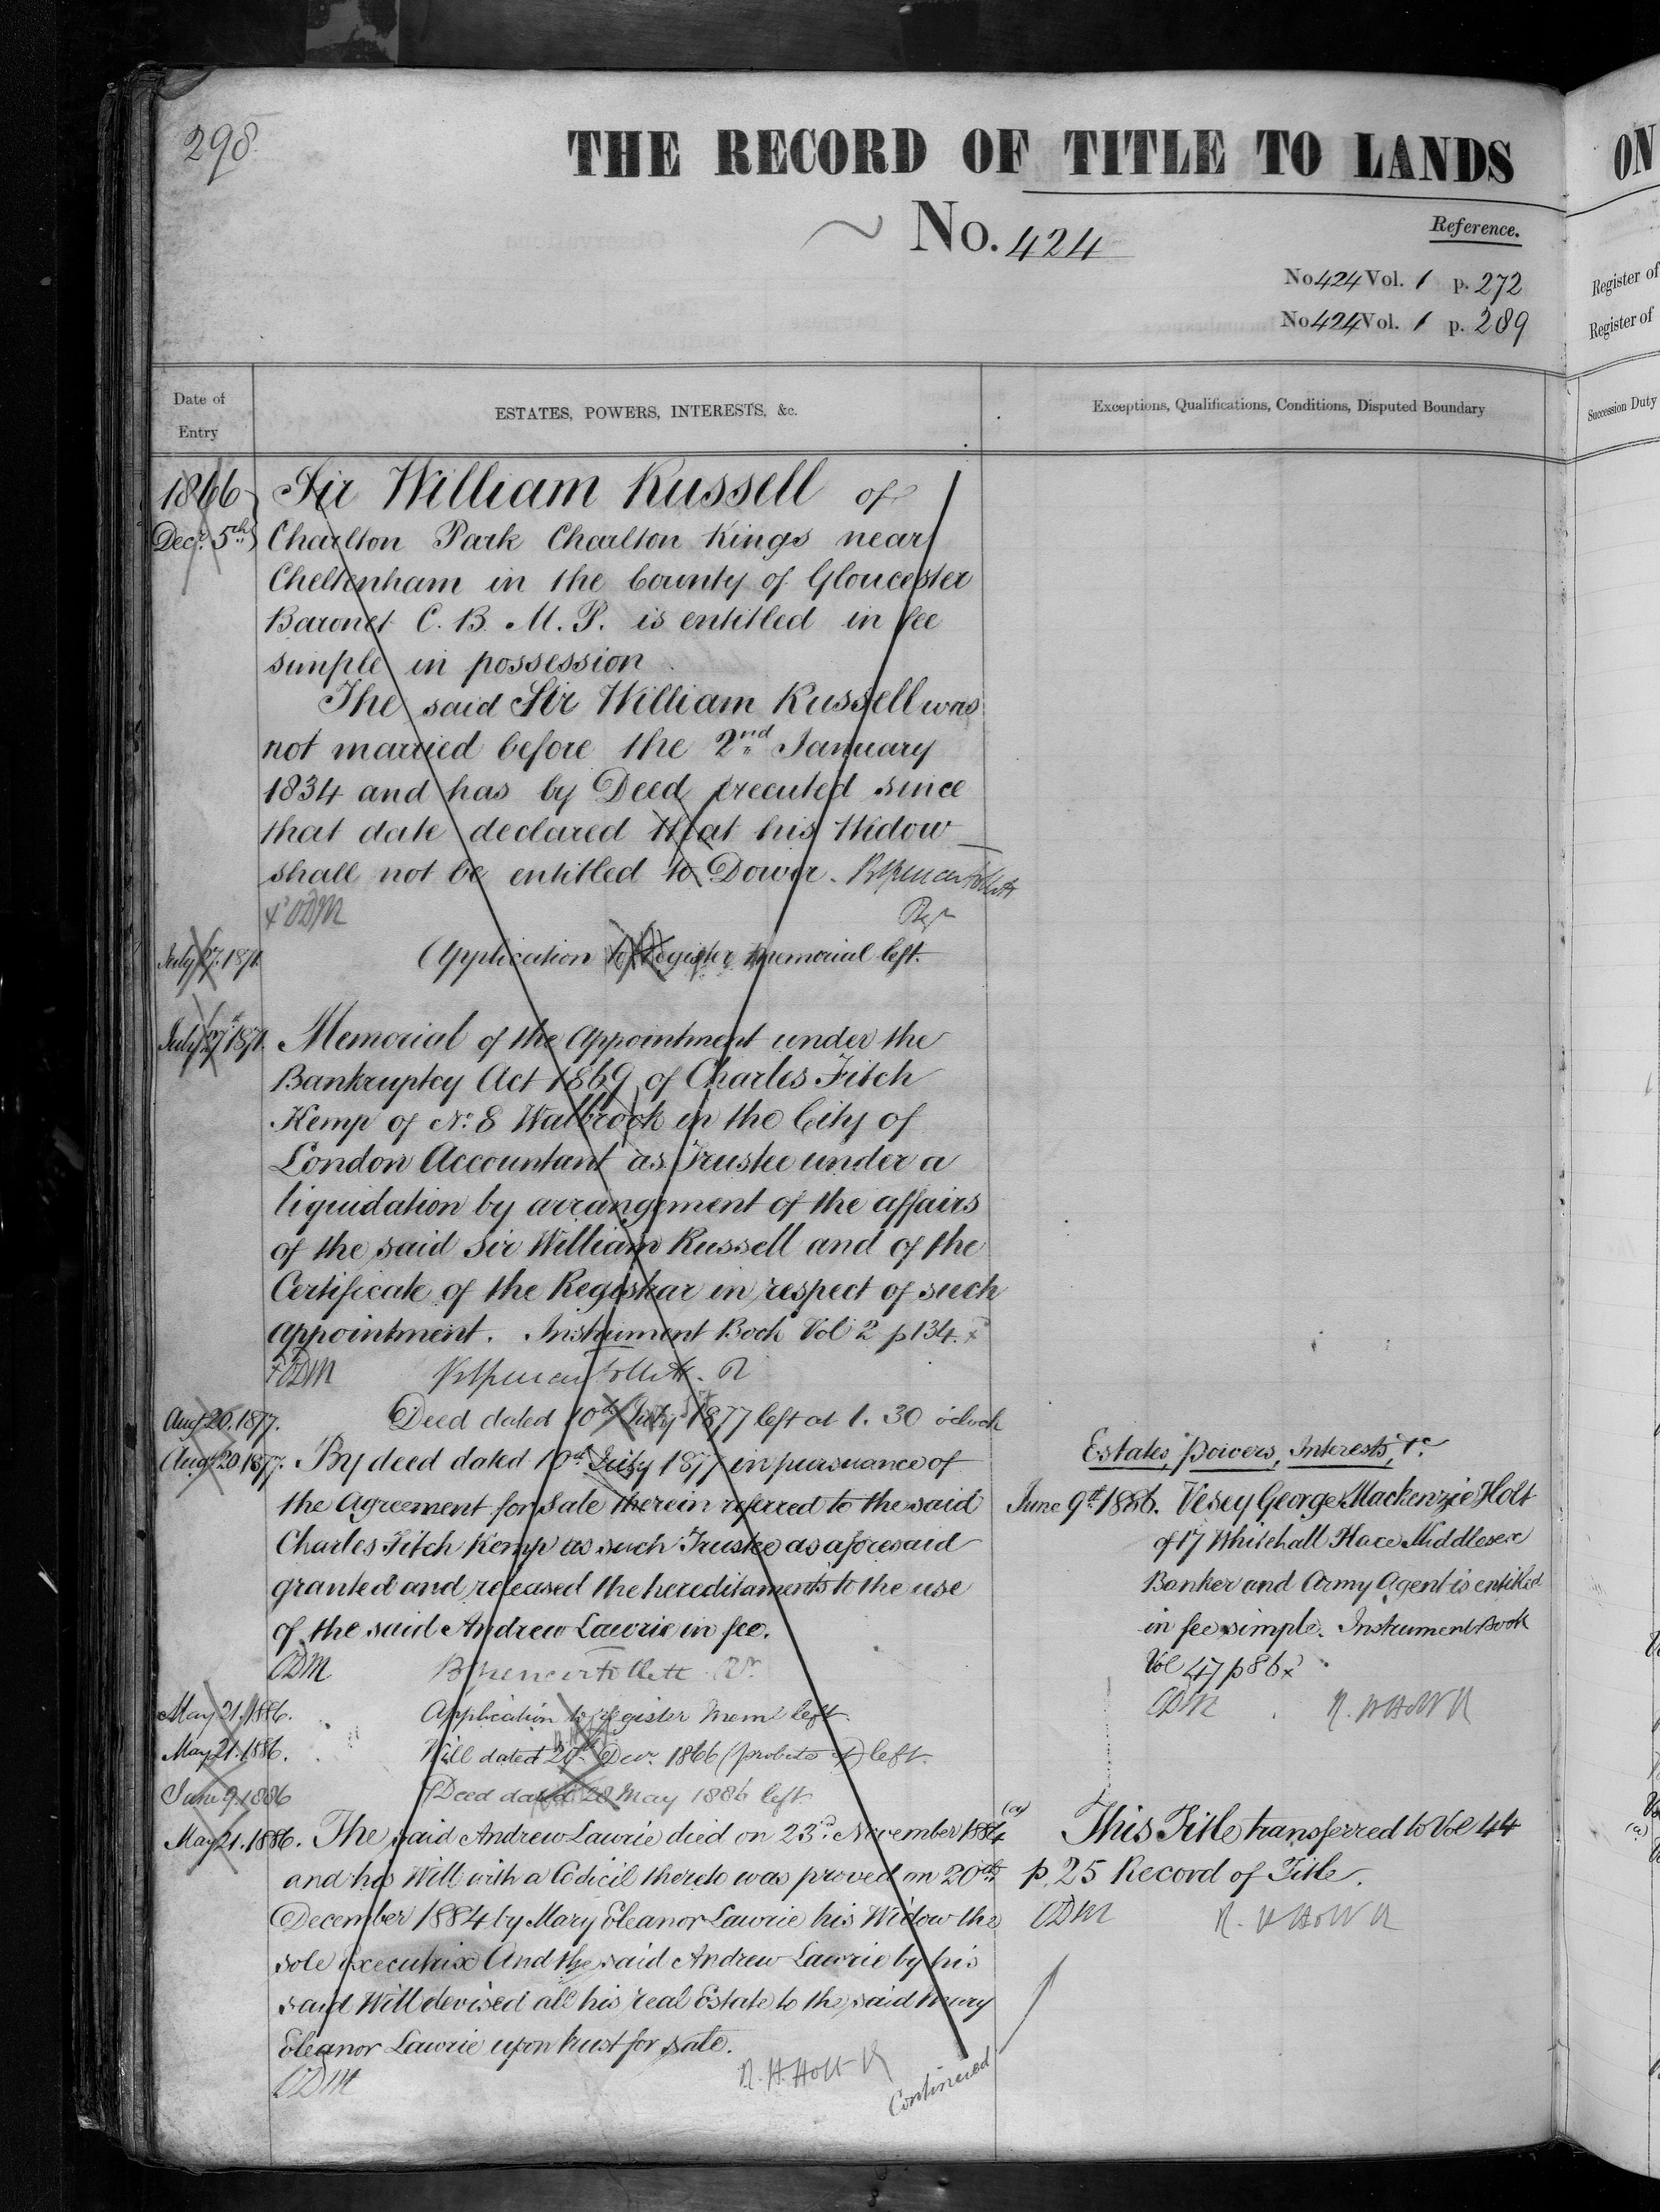 298
THE RECORD OF TITLE TO LANDS
No. 424
Reference.
No 424 Vol. 1 p. 272
No 424 Vol. 1 p. 289
Date of Entry
ESTATES, POWERS, INTERESTS, &c.
Exceptions, Qualifications, Conditions, Disputed Boundary
1866
Decr. 5th
Sir William Russell of
Charlton Park Charlton Kings near
Cheltenham in the County of Gloucester
Baronet C. B. M. P. is entitled in fee
simple in possession
The said Sir William Russell was
not married before the 2nd January
1834 and has by Deed executed since
that date declared that his Widow
shall not be entitled to Dower.
Regr
July 27. 1871. Application to register memorial left.
July 27th 1871. Memorial of the Appointment under the
Bankruptcy Act 1869 of Charles Fitch
Kemp of No. 8 Walbrook in the City of
London Accountant as Trustee under a
liquidation by arrangement of the affairs
of the said Sir William Russell and of the
Certificate of the Registrar in respect of such
Appointment. Instrument Book Vol 2 p134.
Aug 20. 1877. Deed dated 10th July 1877 left at 1. 30 o'clock
Aug 20 1877. By deed dated 10th July 1877 in pursuance of
the Agreement for Sale therein referred to the said
Charles Fitch Kemp as such Trustee as aforesaid
granted and released the hereditaments to the use
of the said Andrew Lawrie in fee.
ODM
May 21. 1886. Application to register Meml left.
May 21. 1886. Will dated Decr. 1866 (probate of) left.
June 9. 1886 Deed dated 28 May 1886 left.
May 21. 1886. The said Andrew Lawrie died on 23rd. November 1884
and his Will with a Codicil thereto was proved on 20th
December 1884 by Mary Eleanor Lawrie his Widow the
sole Executrix And the said Andrew Lawrie by his
said Will devised all his real Estate to the said Mary
Eleanor Lawrie upon trust for sale.
ODM R. H. Holt R
Continued
Estates, Powers, Interests, &c
June 9th 1886. Vesey George Mackenzie Holt
of 17 Whitehall Place Middlesex
Banker and Army Agent is entitled
in fee simple. Instrument Book
Vol 47 p 86
ODM
(a)
This Title transferred to Vol 44
p. 25 Record of Title.
ODM
ON
Register of
Register of
Succession Duty